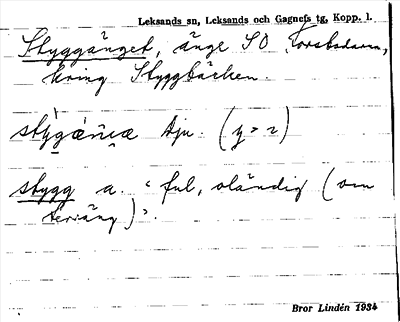 Leksands sn, Leksands och Gagnefs tg, Kopp. l.
Styggänget, änge SO Torsbodarna,
kring Styggbäcken.
Aju. (y > z)
stygg a. "ful, oländig (om
terräng)".
Bror Lindén 1934